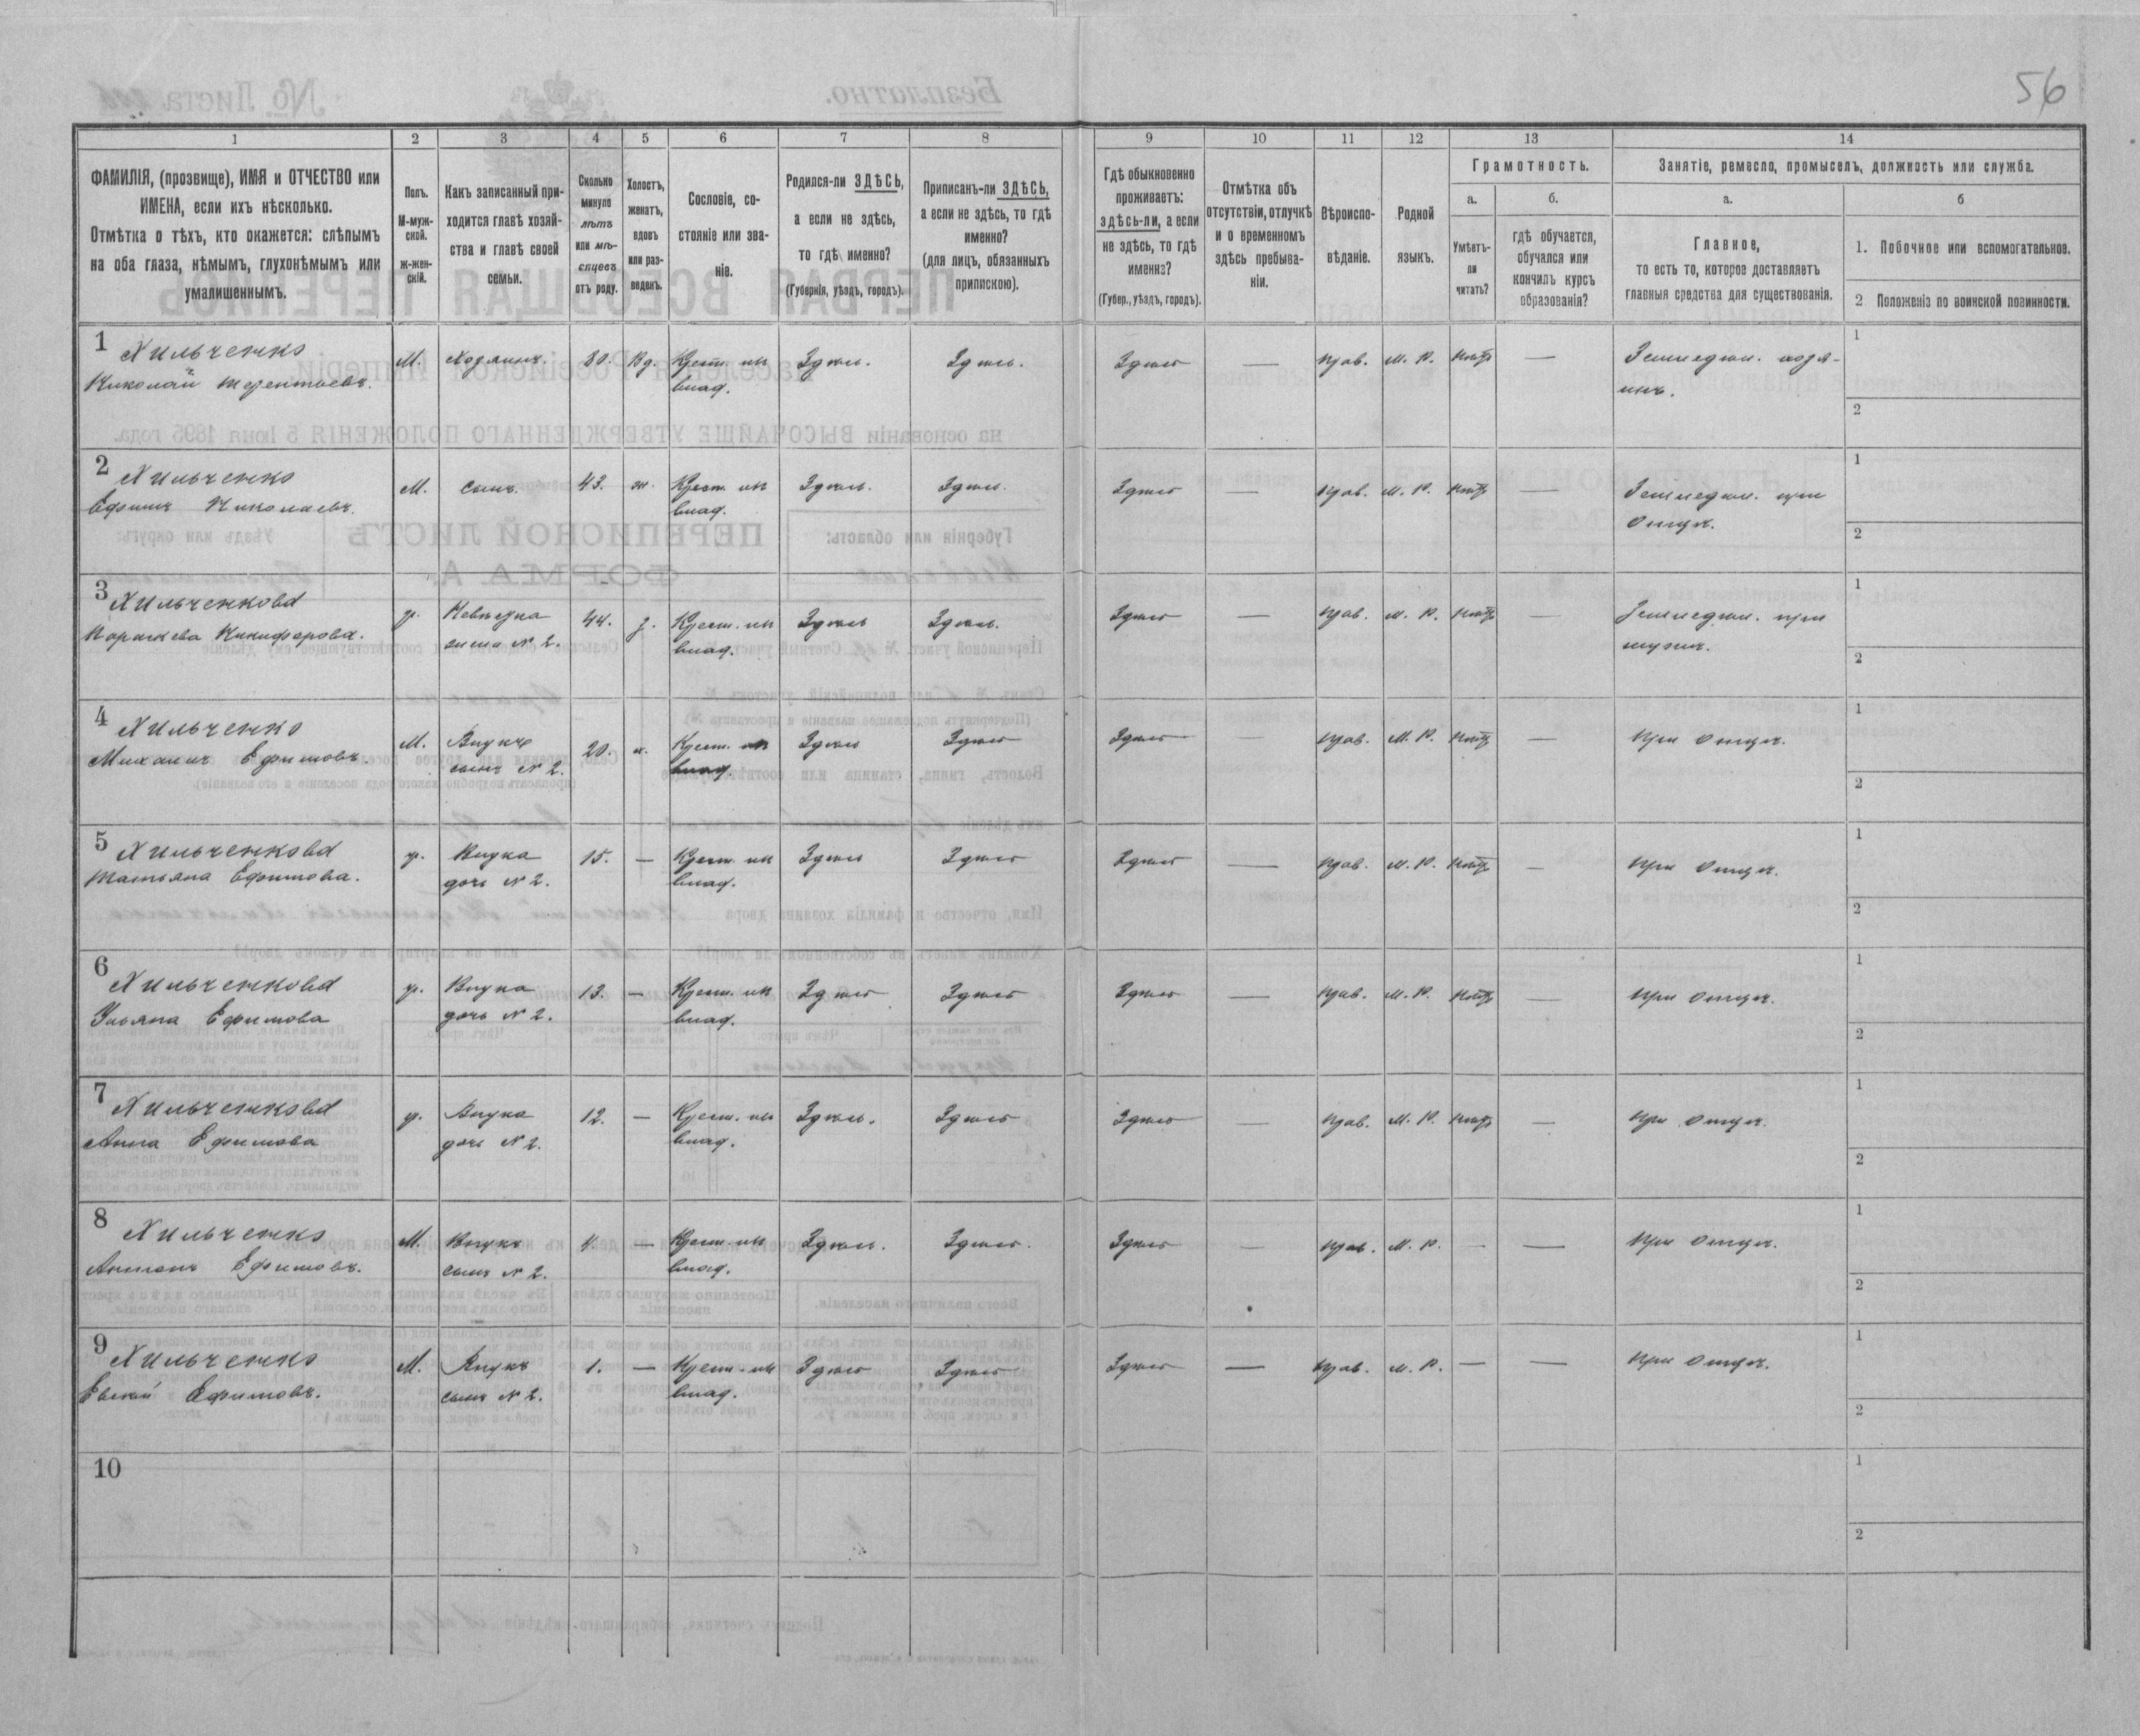 56
1 2 3 4 5 6 7 8 9 10 11 12 13 14
ФАМИЛІЯ, (прозвище), ИМЯ и ОТЧЕСТВО или
ИМЕНА, если ихъ нѣсколько.
Отмѣтка о тѣхъ, кто окажется: слѣпымъ
на оба глаза, нѣмымъ, глухонѣмымъ или
умалишеннымъ.
Полъ.
М-муж-
ской.
ж-жен-
скій.
Какъ записанный при-
ходится главѣ хозяй-
ства и главѣ своей
семьи.
Сколько
минуло
лѣтъ
или мѣ-
сяцевъ
отъ роду.
Холостъ,
женатъ,
вдовъ
или раз-
веденъ.
Сословіе, со-
стояніе или зва-
ніе.
Родился-ли ЗДѢСЬ,
а если не здѣсь,
то гдѣ именно?
(Губернія, уѣздъ, городъ).
Приписанъ-ли ЗДѢСЬ,
а если не здѣсь, то гдѣ
именно?
(для лицъ, обязанныхъ
припискою).
Гдѣ обыкновенно
проживаетъ:
здѣсь-ли, а если
не здѣсь, то гдѣ
именно?
(Губер., уѣздъ, городъ).
Отмѣтка объ
отсутствіи, отлучкѣ
и о временномъ
здѣсь пребыва-
ніи.
Вѣроиспо-
вѣданіе.
Родной
языкъ.
Грамотность.
а.
Умѣетъ-
ли
читать?
б.
гдѣ обучается,
обучался или
кончилъ курсъ
образованія?
Занятіе, ремесло, промыселъ, должность или служба.
а.
Главное,
то есть то, которое доставляетъ
главныя средства для существованія.
б
1. Побочное или вспомогательное.
2 Положеніе по воинской повинности.
1 Хильченко М. Хозяинъ. 80. Вд. Крест. из Здѣсь. Здѣсь. Здѣсь — прав. м. р. нѣтъ — Земледѣл. хозя- 1
Николай Терентьевъ. влад. инъ. 2
2 Хильченко М. сынъ. 43. ж. Крест. из Здѣсь. Здѣсь. Здѣсь — прав. м. р. нѣтъ — Земледѣл. при 1
Ефимъ Николаевъ. влад. отцѣ. 2
3 Хильченкова ж. Невѣстка 44. з. Крест. из Здѣсь Здѣсь. Здѣсь — прав. м. р. нѣтъ — Земледѣл. при 1
Никифорова. жена № 2. влад. мужѣ. 2
4 Хильченко М. Внукъ 20. х. Крест. Здѣсь Здѣсь Здѣсь — прав. м. р. нѣтъ — при отцѣ. 1
Михаилъ Ефимовъ. сынъ № 2. влад. 2
5 Хильченкова ж. Внука 15. — Крест. из Здѣсь Здѣсь Здѣсь — прав. м. р. нѣтъ — при отцѣ. 1
Татьяна Ефимова. дочь № 2. влад. 2
6 Хильченкова ж. Внука 13. — Крест. из Здѣсь Здѣсь Здѣсь — прав. м. р. нѣтъ — при отцѣ. 1
Ульяна Ефимова дочь № 2. влад. 2
7 Хильченкова ж. Внука 12. — Крест. из Здѣсь. Здѣсь Здѣсь — прав. м. р. нѣтъ — при отцѣ. 1
Анна Ефимова дочь № 2. влад. 2
8 Хильченко М. Внукъ 4. — Крест. из Здѣсь. Здѣсь. Здѣсь — прав. м. р. — — при отцѣ. 1
Антонъ Ефимовъ. сынъ № 2. влад. 2
9 Хильченко М. Внукъ 1. — Крест. из Здѣсь Здѣсь Здѣсь — прав. м. р. — — при отцѣ. 1
Ефимовъ. сынъ № 2. влад. 2
10 1
2